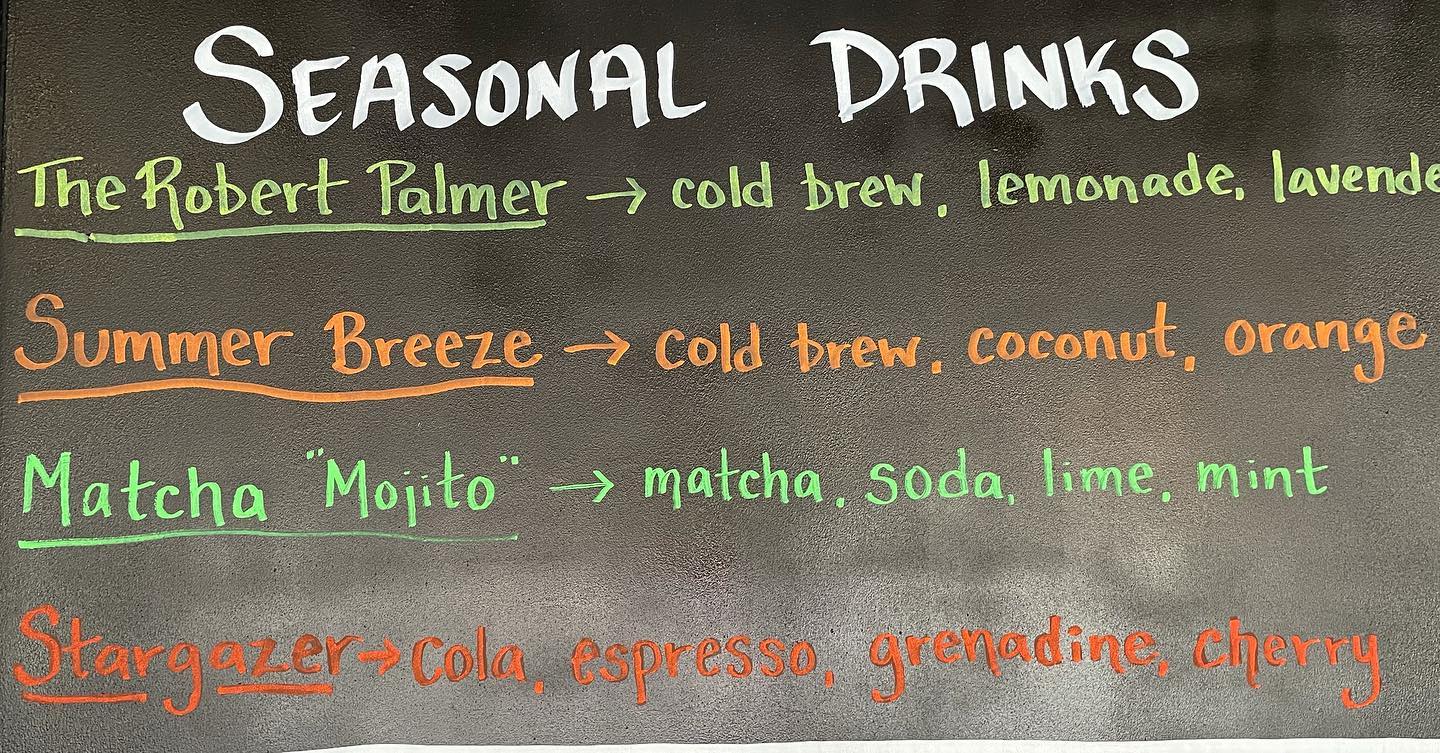 SEASONAL DRINKS
The Robert Palmer → cold brew, lemonade, lavende
Summer Breeze → cold brew, coconut, orange
Matcha "Mojito" → matcha, soda, lime, mint
Stargazer → cola, espresso, grenadine, cherry